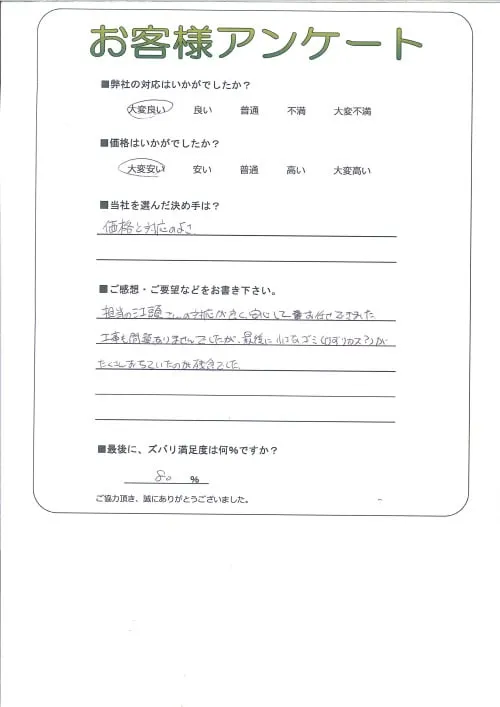 お客様アンケート
■弊社の対応はいかがでしたか？
大変良い 良い 普通 不満 大変不満
■価格はいかがでしたか？
大変安い 安い 普通 高い 大変高い
■当社を選んだ決め手は？
価格と対応のよさ
■ご感想・ご要望などをお書き下さい。
担当の江頭さんの対応が良く、安心してお任せできました
工事も問題ありませんでしたが、最後に小さなゴミ(切りカス？)が
たくさんおちていたのが残念でした。
■最後に、ズバリ満足度は何％ですか？
80 ％
ご協力頂き、誠にありがとうございました。